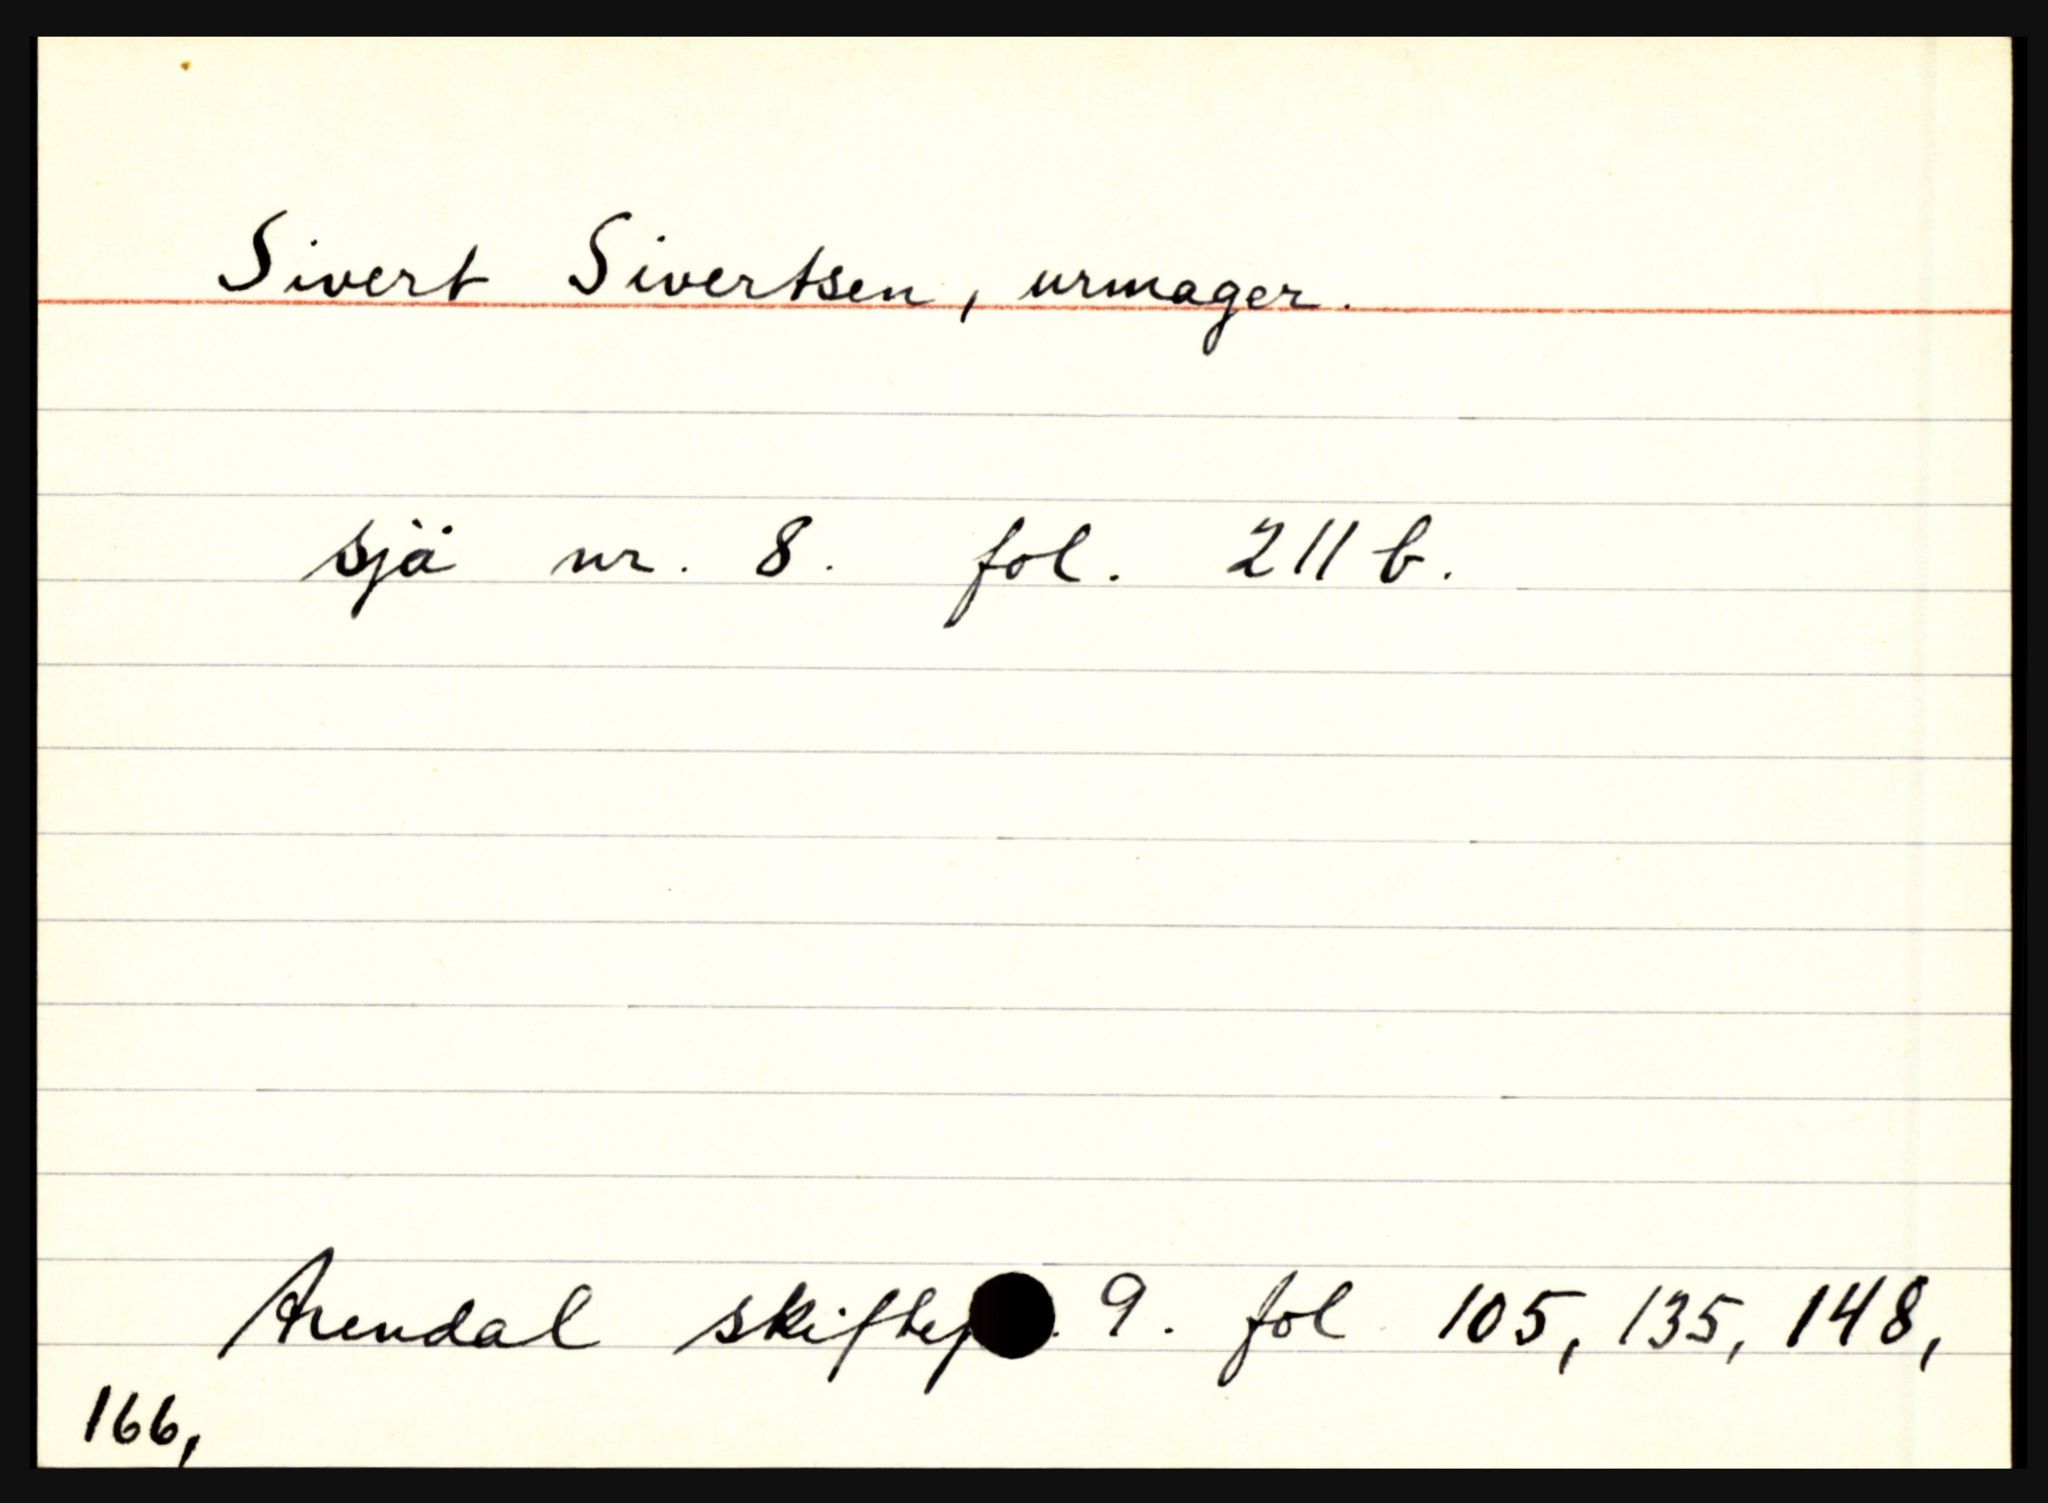 Sivert Sivertsen, urmager.
sjå nr. 8. fol. 211b.
Arendal 9. fol 105, 135, 148,
166,